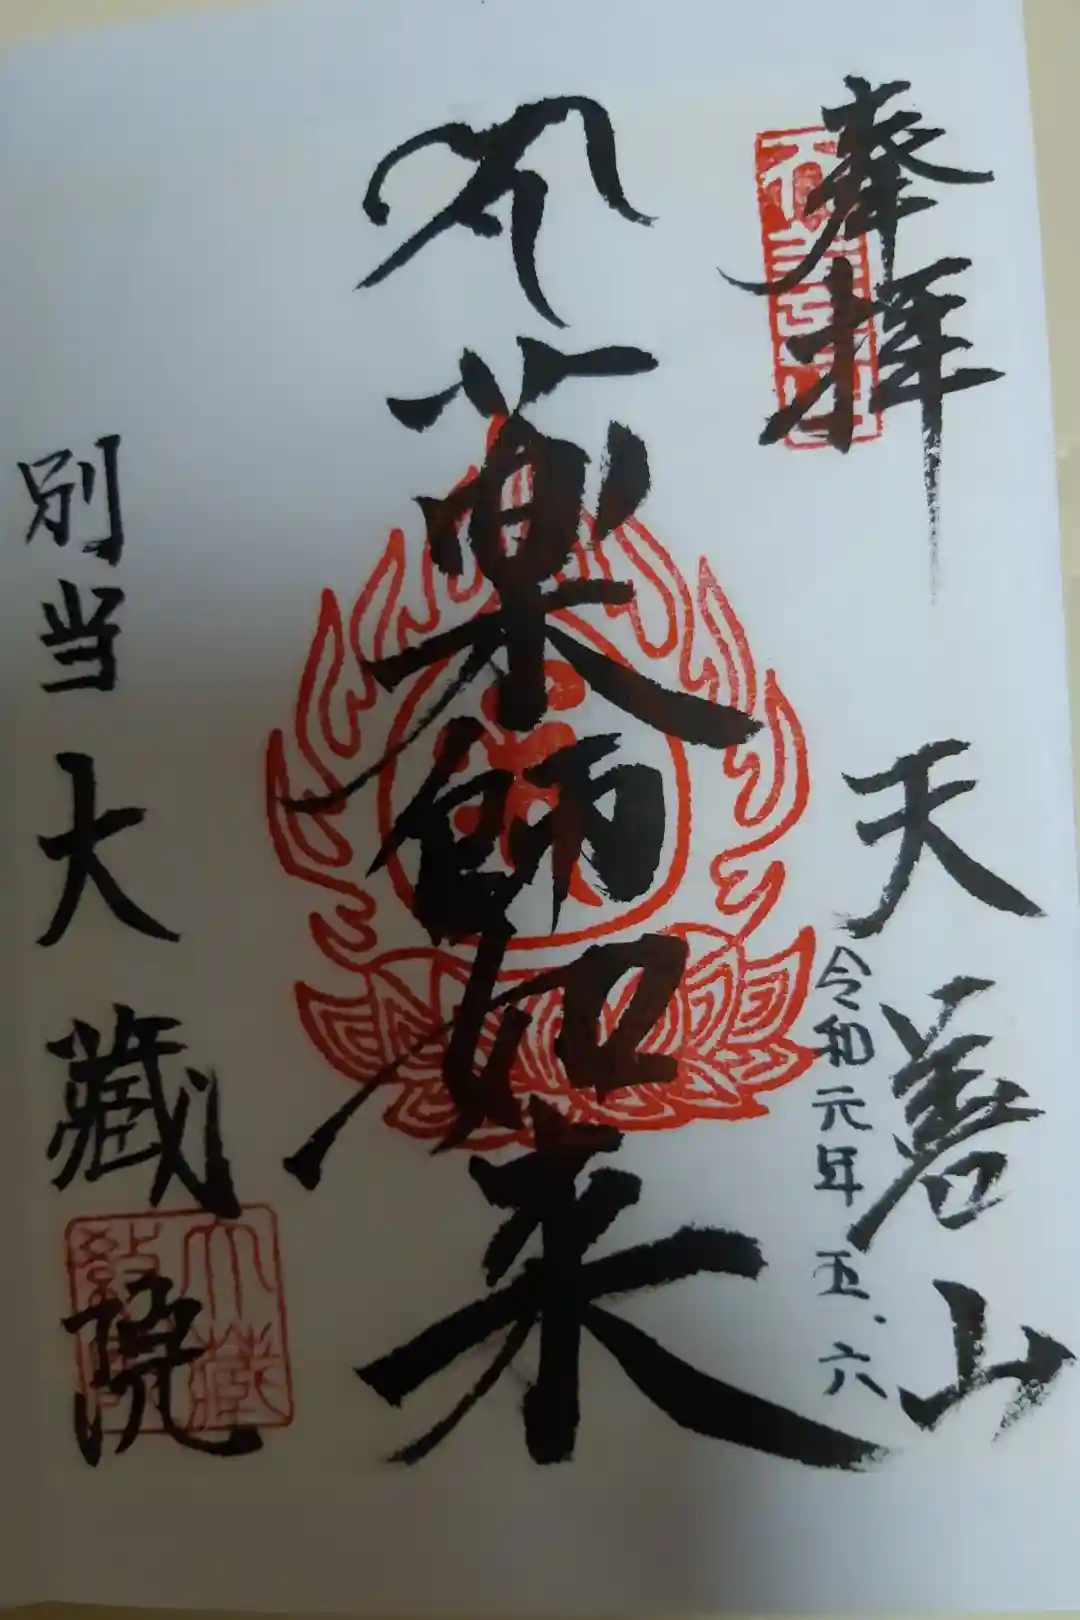 奉拝
天善山
令和元年五.六
薬師如来
別当大蔵院
大蔵